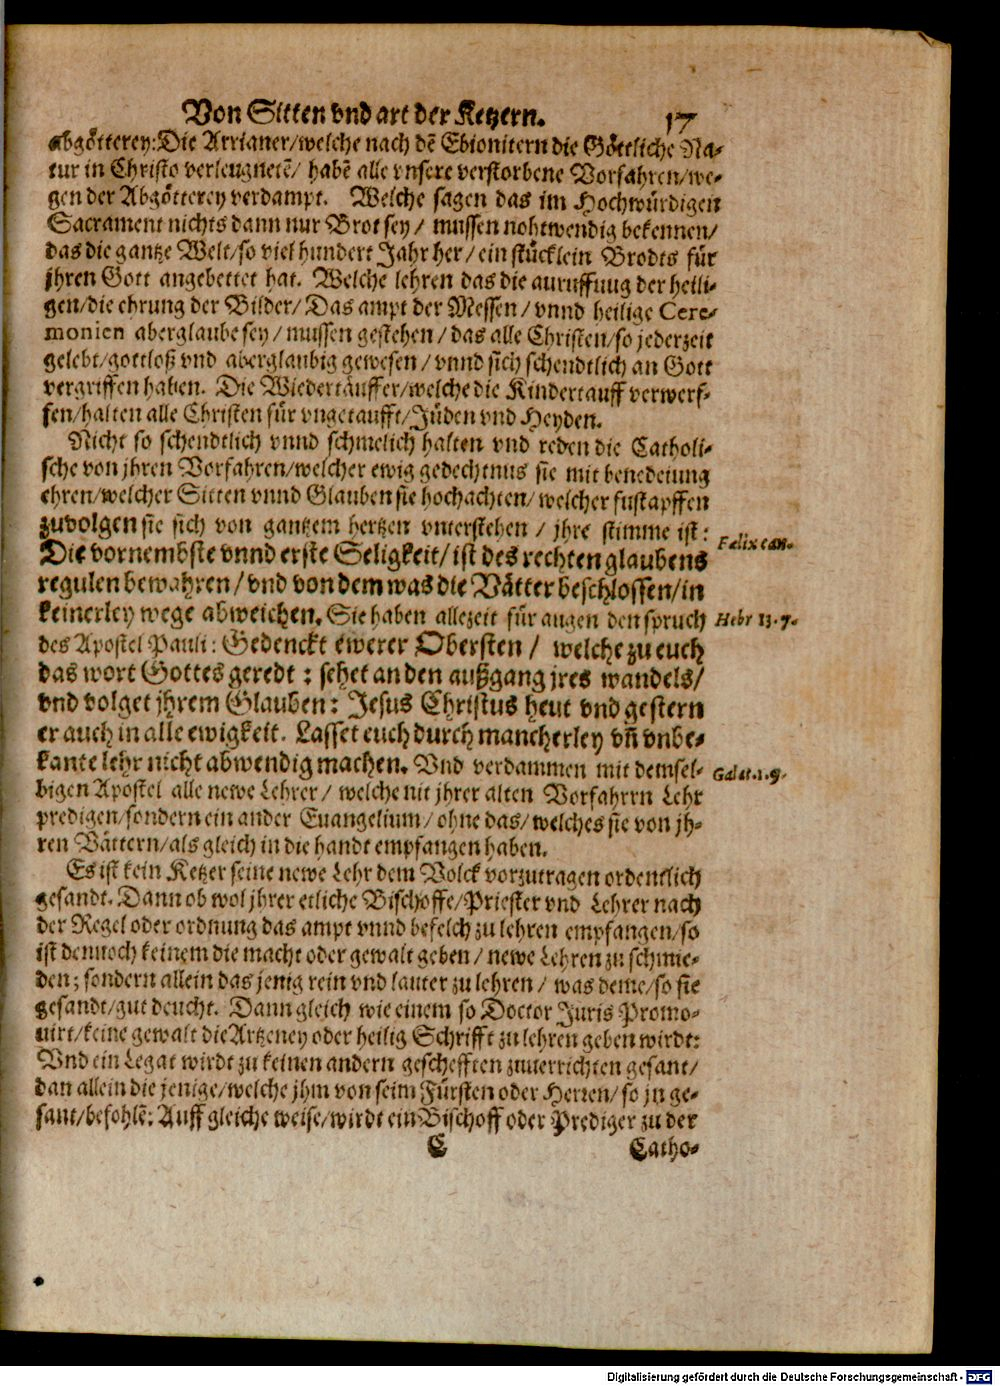 Von Sitten vnd art der Ketzern. 17
abgötterey: Die Arrianer/welche nach dē Ebionitern die Göttliche Na-
tur in Christo verleugnetē/ habē alle vnsere verstorbene Vorfahren/we-
gen der Abgötterey verdampt. Welche sagen das im Hochwürdigen
Sacrament nichts dann nur Brot sey/ mussen nohtwendig bekennen/
das die gantze Welt/so viel hundert Jahr her/ein stücklein Brodts für
jhren Gott angebettet hat. Welche lehren das die anruffung der heili-
gen/die ehrung der Bilder/ Das ampt der Messen/ vnnd heilige Cere-
monien aberglaube sey/ mussen gestehen/ das alle Christen/so jederzeit
gelebt/gottloß vnd aberglaubig gewesen/ vnnd sich schendtlich an Gott
vergriffen haben. Die Wiedertäuffer/welche die Kindertauff verwerf-
fen/halten alle Christen für vngetaufft/Jüden vnd Heyden.
Nicht so schendtlich vnnd schmelich halten vnd reden die Catholi-
sche von jhren Vorfahren/welcher ewig gedechtnus sie mit benedeiung
ehren/welcher Sitten vnnd Glauben sie hochachten/welcher fustapffen
zuvolgen sie sich von gantzem hertzen vnterstehen/ jhre stimme ist:
Felix can.
Die vornembste vnnd erste Seligkeit/ist des rechten glaubens
regulen bewahren/vnd von dem was die Vätter beschlossen/in
keinerley wege abweichen. Sie haben allezeit für augen den spruch
Hebr 13.7.
des Apostel Pauli: Gedenckt ewerer Obersten/ welche zu euch
das wort Gottes geredt: sehet an den außgang jres wandels/
vnd volget jhrem Glauben: Jesus Christus heut vnd gestern
er auch in alle ewigkeit. Lasset euch durch mancherley vñ vnbe-
kante lehr nicht abwendig machen. Vnd verdammen mit demsel-
Galat.1.9.
bigen Apostel alle newe Lehrer/ welche nit jhrer alten Vorfahrrn Lehr
predigen/sondern ein ander Euangelium/ohne das/welches sie von jh-
ren Vättern/als gleich in die handt empfangen haben.
Es ist kein Ketzer seine newe Lehr dem Volck vorzutragen ordentlich
gesandt. Dann ob wol jhrer etliche Bischoffe/Priester vnd Lehrer nach
der Regel oder ordnung das ampt vnnd befelch zu lehren empfangen/so
ist dennoch keinem die macht oder gewalt geben/ newe Lehren zu schmie-
den; sondern allein das jenig rein vnd lauter zu lehren/ was deme/so sie
gesandt/gut deucht. Dann gleich wie einem so Doctor Juris Promo-
uirt/keine gewalt die Artzeney oder heilig Schrifft zu lehren geben wirdt:
Vnd ein Legat wirdt zu keinen andern geschefften zuuerrichten gesant/
dan allein die jenige/welche jhm von seim Fürsten oder Herren/so jn ge-
sant/befohlē: Auff gleiche weise/wirdt ein Bischoff oder Prediger zu der
C Catho-
Digitalisierung gefördert durch die Deutsche Forschungsgemeinschaft - DFG